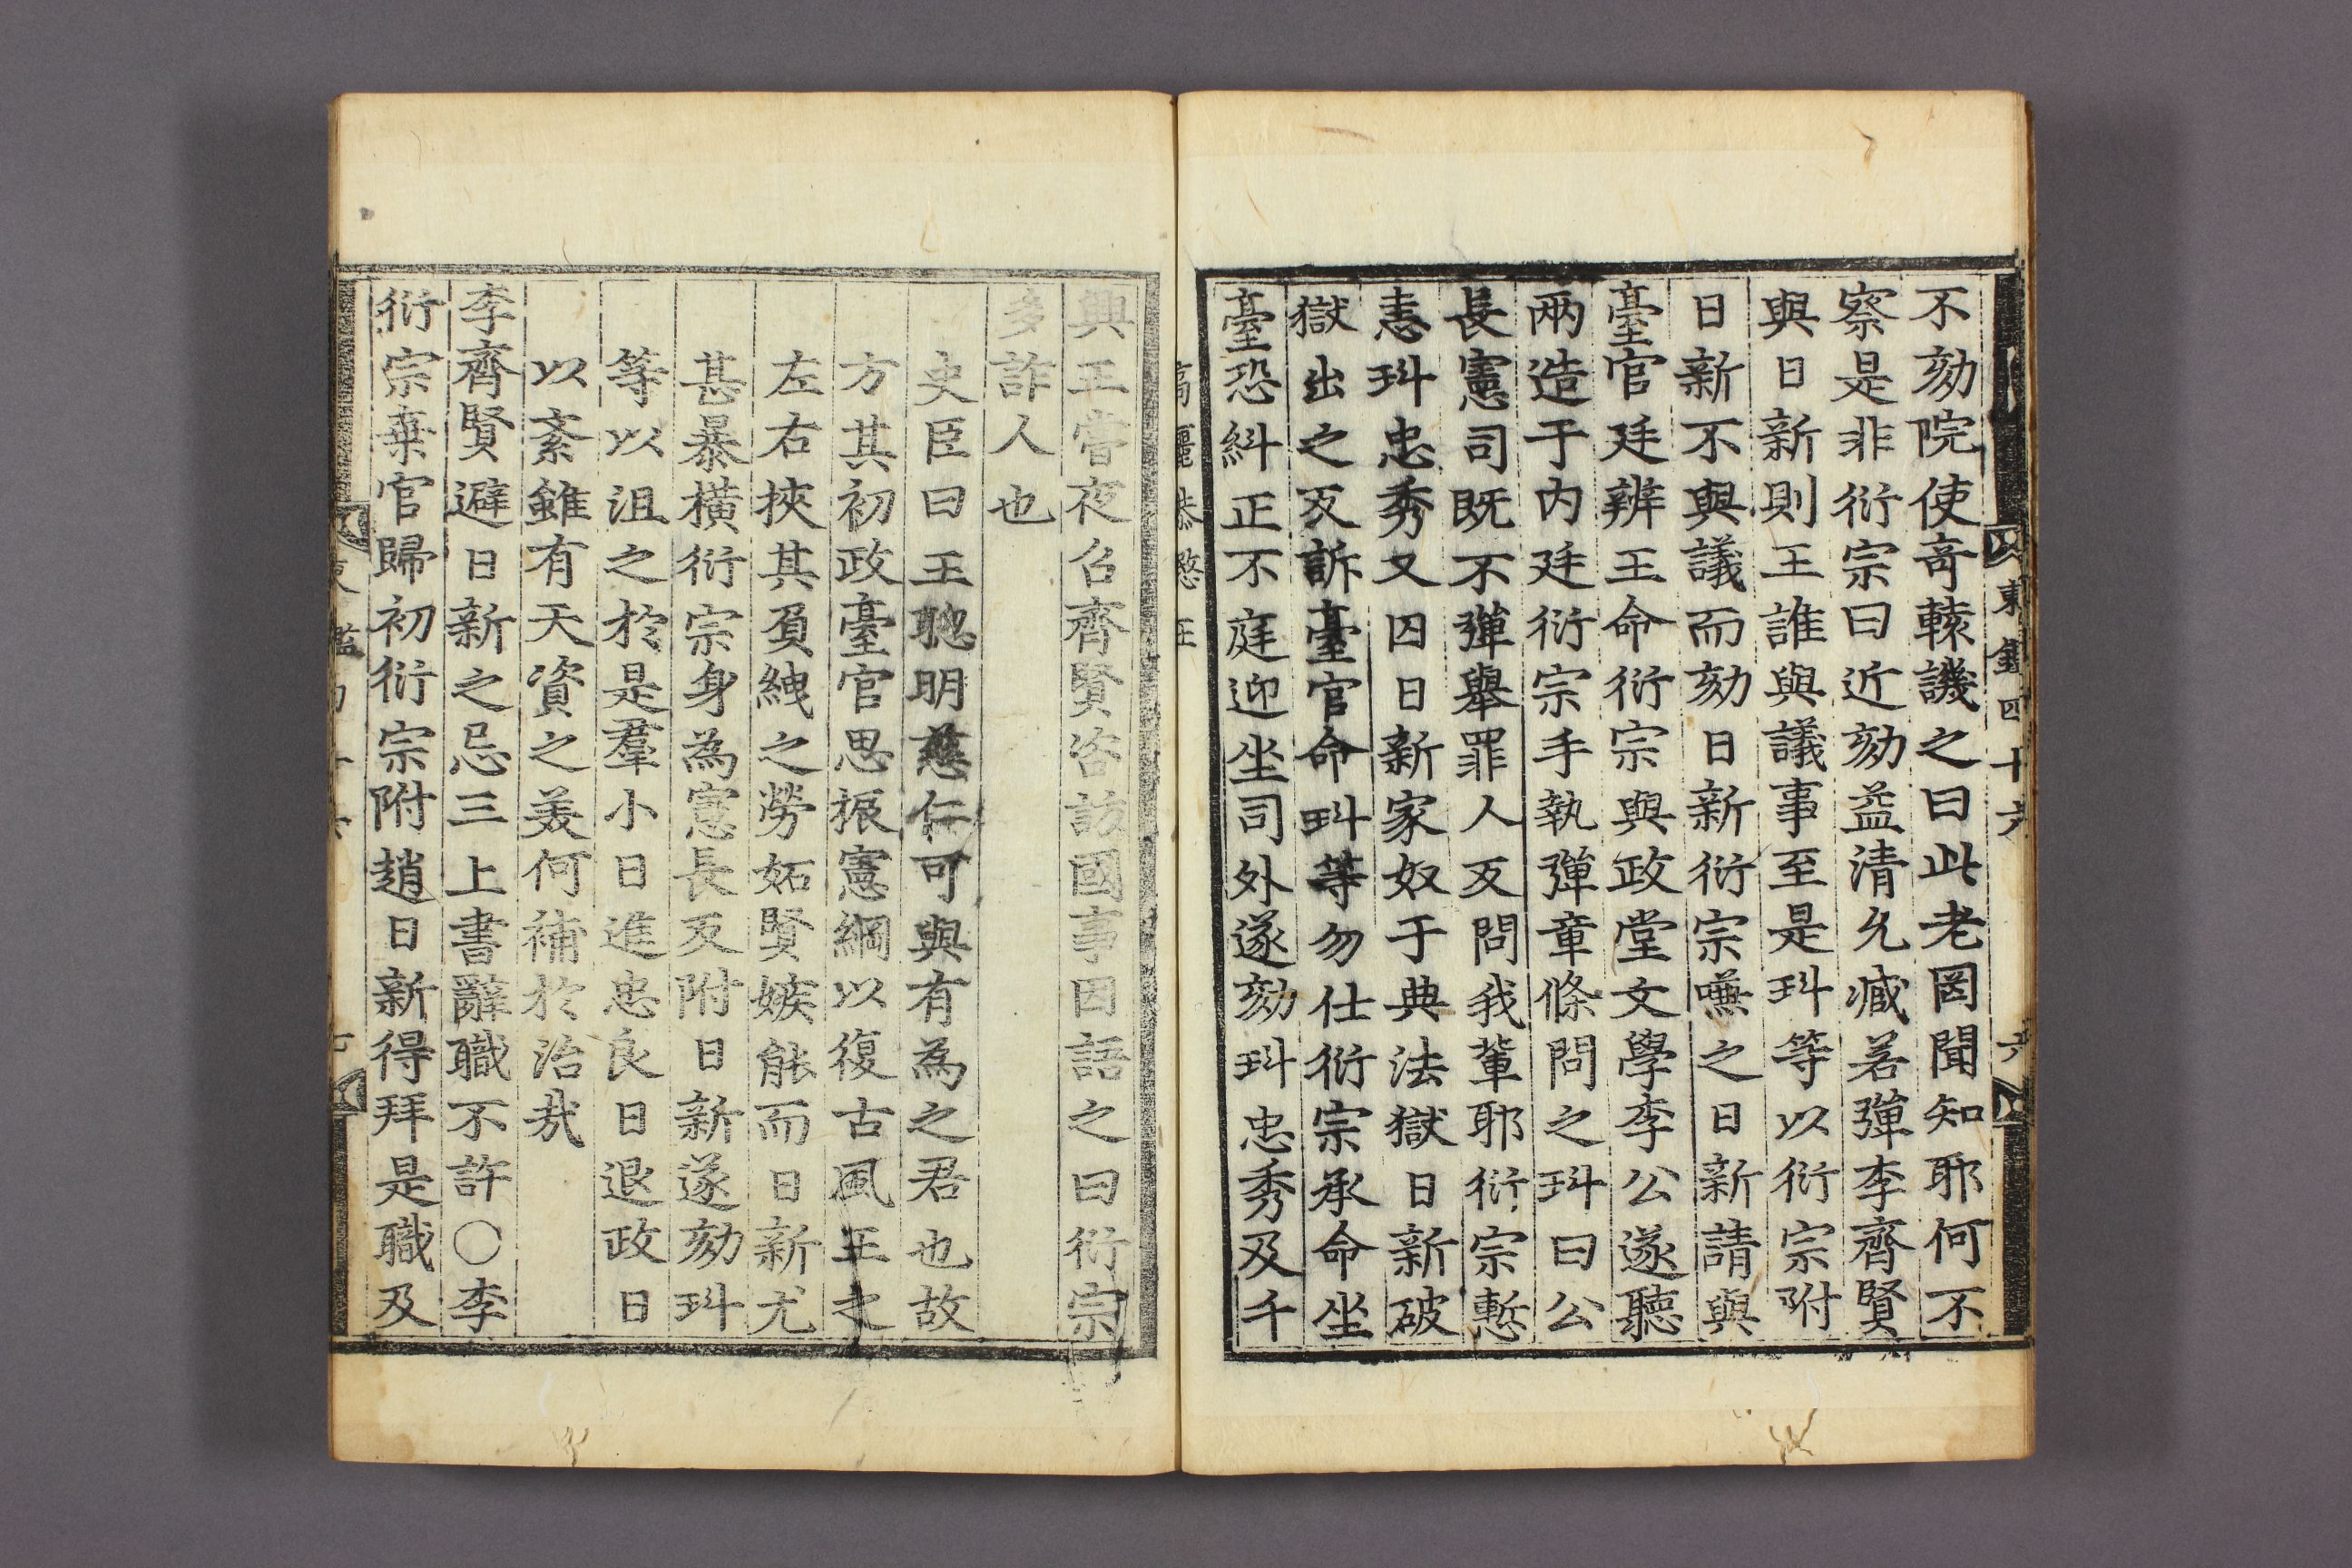 東鑑四十六
六
不劾院使奇轅譏之曰此老罔聞知耶何不
察是非衍宗曰近劾益清允臧若彈李齊賢
與日新則王誰與議事至是玝等以衍宗附
日新不與議而劾日新衍宗嚥之日新請與
臺官廷辨王命衍宗與政堂文學李公遂聽
兩造于內廷衍宗手執彈章條問之玝曰公
長憲司既不彈舉罪人反問我輩耶衍宗慙
恚玝忠秀又囚日新家奴于典法獄日新破
獄出之反訴臺官命玝等勿仕衍宗承命坐
臺恐糾正不庭迎坐司外遂劾玝忠秀及千
高麗恭愍王
興王嘗夜召齊賢咨訪國事因語之曰衍宗
多詐人也
史臣曰王聰明慈仁可與有為之君也故
方其初政臺官思振憲綱以復古風王之
左右挾其負絏之勞妬賢嫉能而日新尤
甚暴橫衍宗身為憲長反附日新遂劾玝
等以沮之於是羣小日進忠良日退政日
以紊雖有天資之美何補於治哉
李齊賢避日新之忌三上書辭職不許○李
衍宗棄官歸初衍宗附趙日新得拜是職及